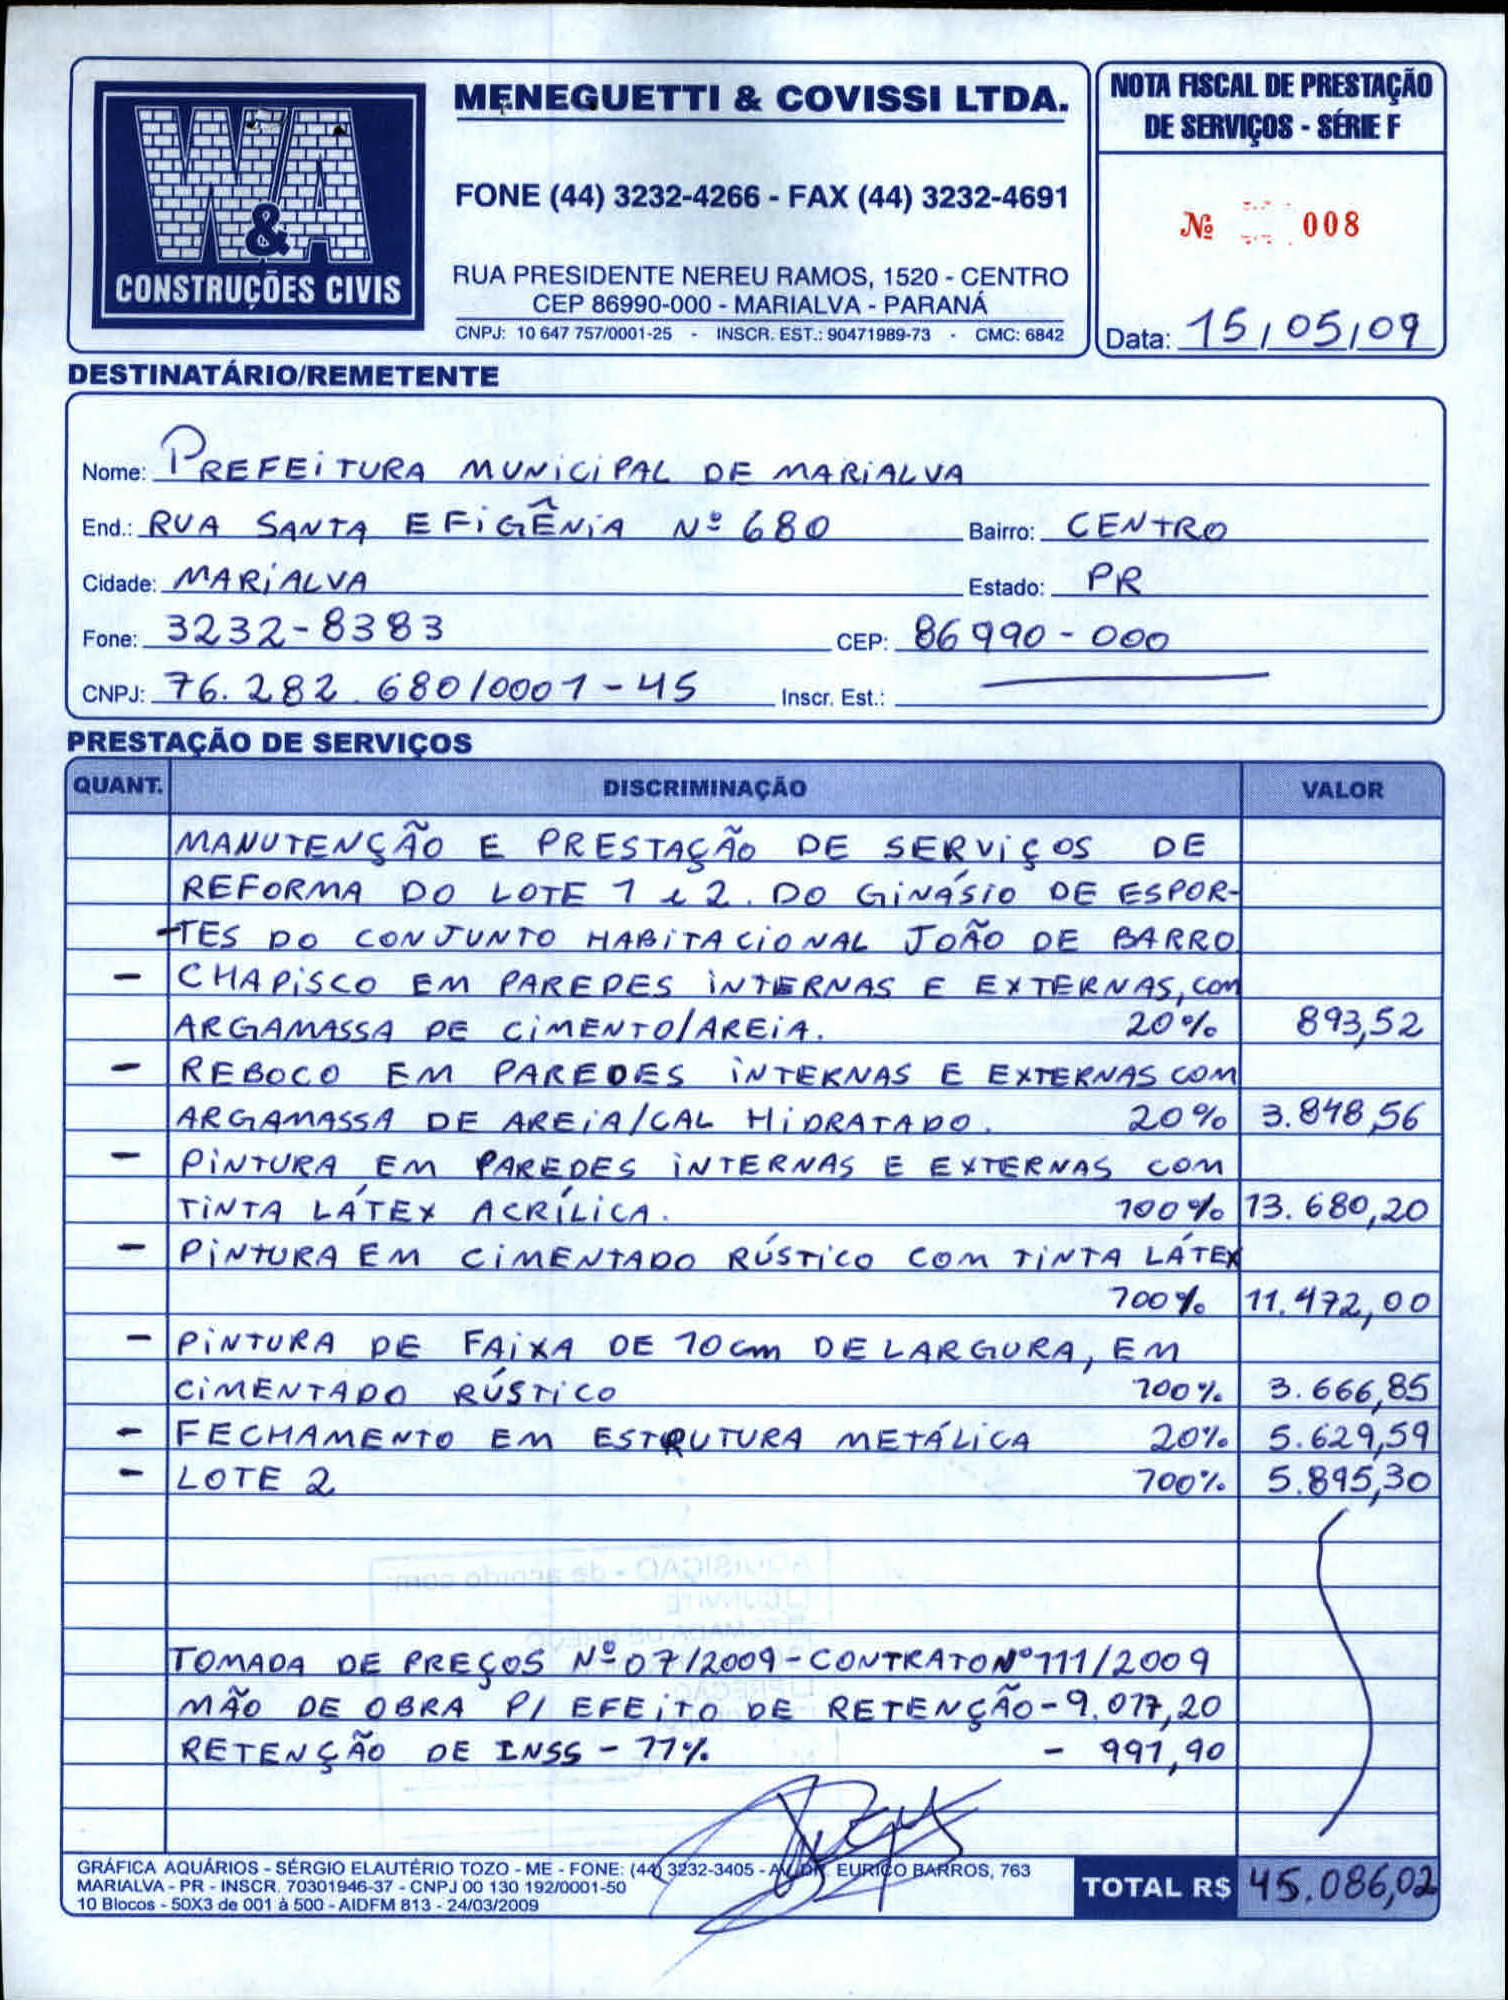 W&A
CONSTRUÇÕES CIVIS
MENEGUETTI & COVISSI LTDA.
FONE (44) 3232-4266 - FAX (44) 3232-4691
RUA PRESIDENTE NEREU RAMOS, 1520 - CENTRO
CEP 86990-000 - MARIALVA - PARANÁ
CNPJ: 10 647 757/0001-25 - INSCR. EST.: 90471989-73 - CMC: 6842
NOTA FISCAL DE PRESTAÇÃO
DE SERVIÇOS - SÉRIE F
Nº 008
Data: 15/05/09
DESTINATÁRIO/REMETENTE
Nome: PREFEITURA MUNICIPAL DE MARIALVA
End.: RUA SANTA EFIGÊNIA Nº 680 Bairro: CENTRO
Cidade: MARIALVA Estado: PR
Fone: 3232-8383 CEP: 86990-000
CNPJ: 76.282.680/0001-45 Inscr. Est.:
PRESTAÇÃO DE SERVIÇOS
QUANT. DISCRIMINAÇÃO VALOR
MANUTENÇÃO E PRESTAÇÃO DE SERVIÇOS DE
REFORMA DO LOTE 1 e 2. DO GINÁSIO DE ESPOR-
-TES DO CONJUNTO HABITACIONAL JOÃO DE BARRO
- CHAPISCO EM PAREDES INTERNAS E EXTERNAS, COM
ARGAMASSA DE CIMENTO/AREIA. 20% 893,52
- REBOCO EM PAREDES INTERNAS E EXTERNAS COM
ARGAMASSA DE AREIA/CAL HIDRATADO. 20% 3.848,56
- PINTURA EM PAREDES INTERNAS E EXTERNAS COM
TINTA LÁTEX ACRÍLICA. 100% 13.680,20
- PINTURA EM CIMENTADO RÚSTICO COM TINTA LÁTEX
100% 11.472,00
- PINTURA DE FAIXA DE 10cm DE LARGURA, EM
CIMENTADO RÚSTICO 100% 3.666,85
- FECHAMENTO EM ESTRUTURA METÁLICA 20% 5.629,59
- LOTE 2 100% 5.895,30
TOMADA DE PREÇOS Nº 07/2009 - CONTRATO Nº 111/2009
MÃO DE OBRA P/ EFEITO DE RETENÇÃO - 9.017,20
RETENÇÃO DE INSS - 11% - 991,90
GRÁFICA AQUÁRIOS - SÉRGIO ELAUTÉRIO TOZO - ME - FONE: (44) 3232-3405 - AV. DR. EURICO BARROS, 763
MARIALVA - PR - INSCR. 70301946-37 - CNPJ 00 130 192/0001-50
10 Blocos - 50X3 de 001 à 500 - AIDFM 813 - 24/03/2009
TOTAL R$ 45.086,02